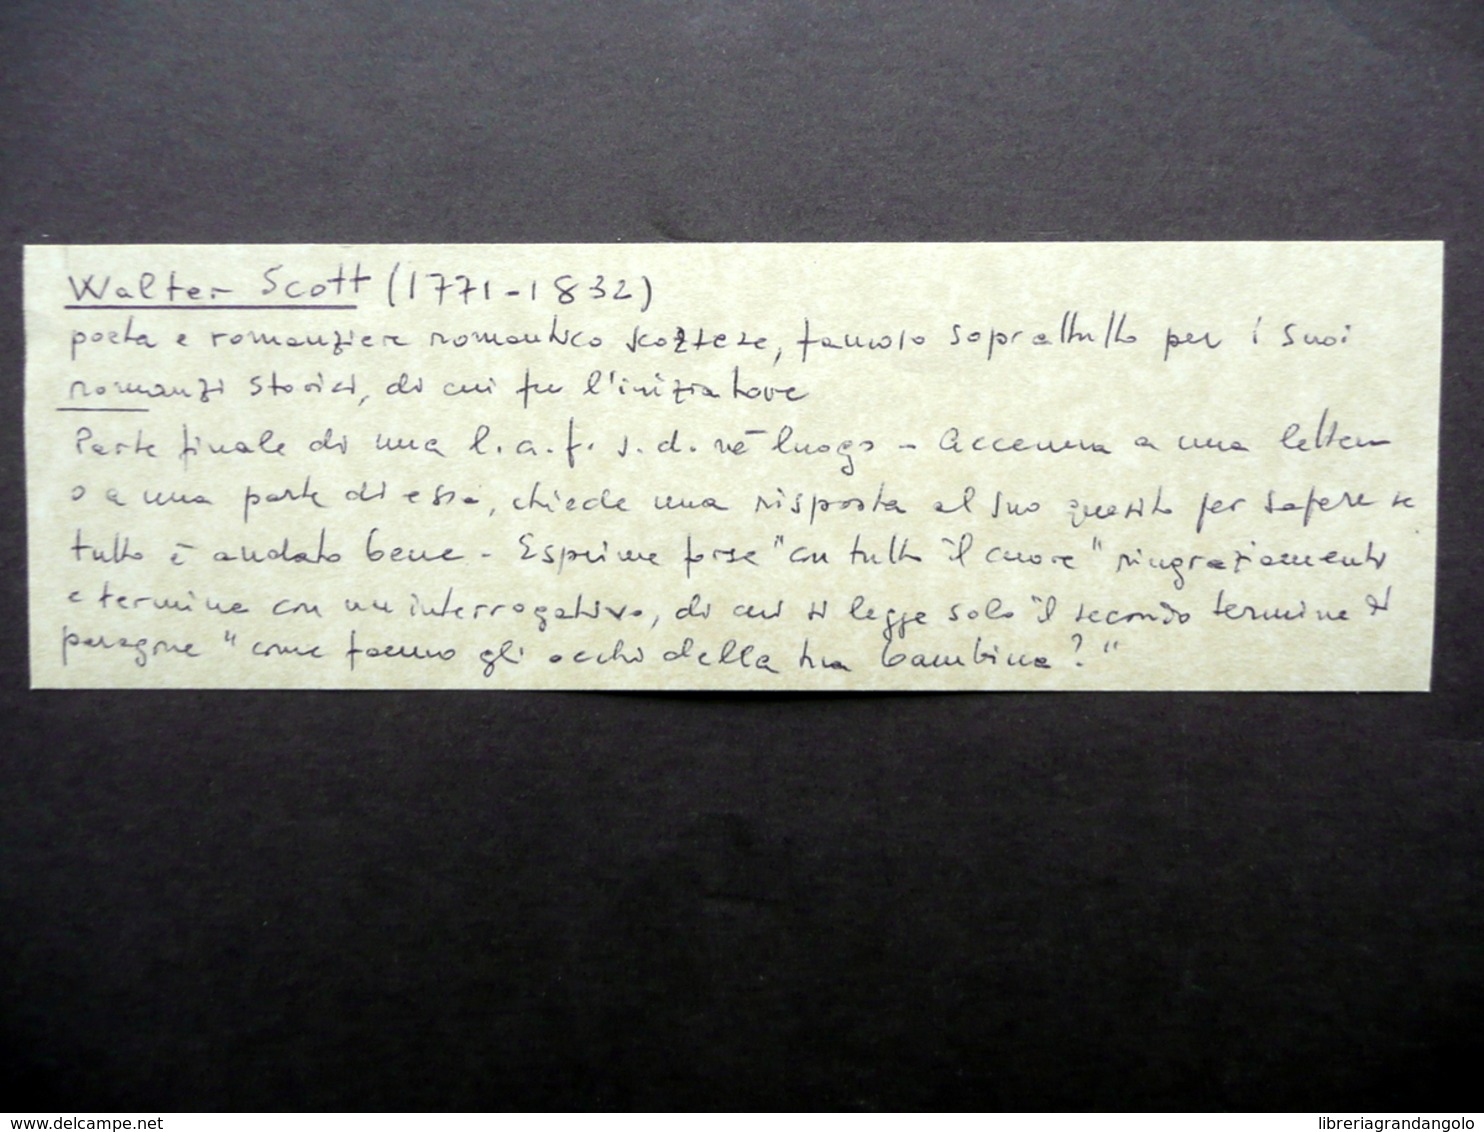 Walter Scott (1771-1832)
poeta e romanziere romantico scozzese, famoso soprattutto per i suoi
romanzi storici, di cui fu l'iniziatore
Parte finale di una l.a.f. s.d. nè luogo - Accenna a una lettera
o a una parte di essa, chiede una risposta al suo quesito per sapere se
tutto è andato bene - Esprime forse "con tutto il cuore" ringraziamenti
e termina con un interrogativo, di cui si legge solo il secondo termine di
paragone "come fanno gli occhi della tua bambina?"
delcampe.net
libreriagrandangolo